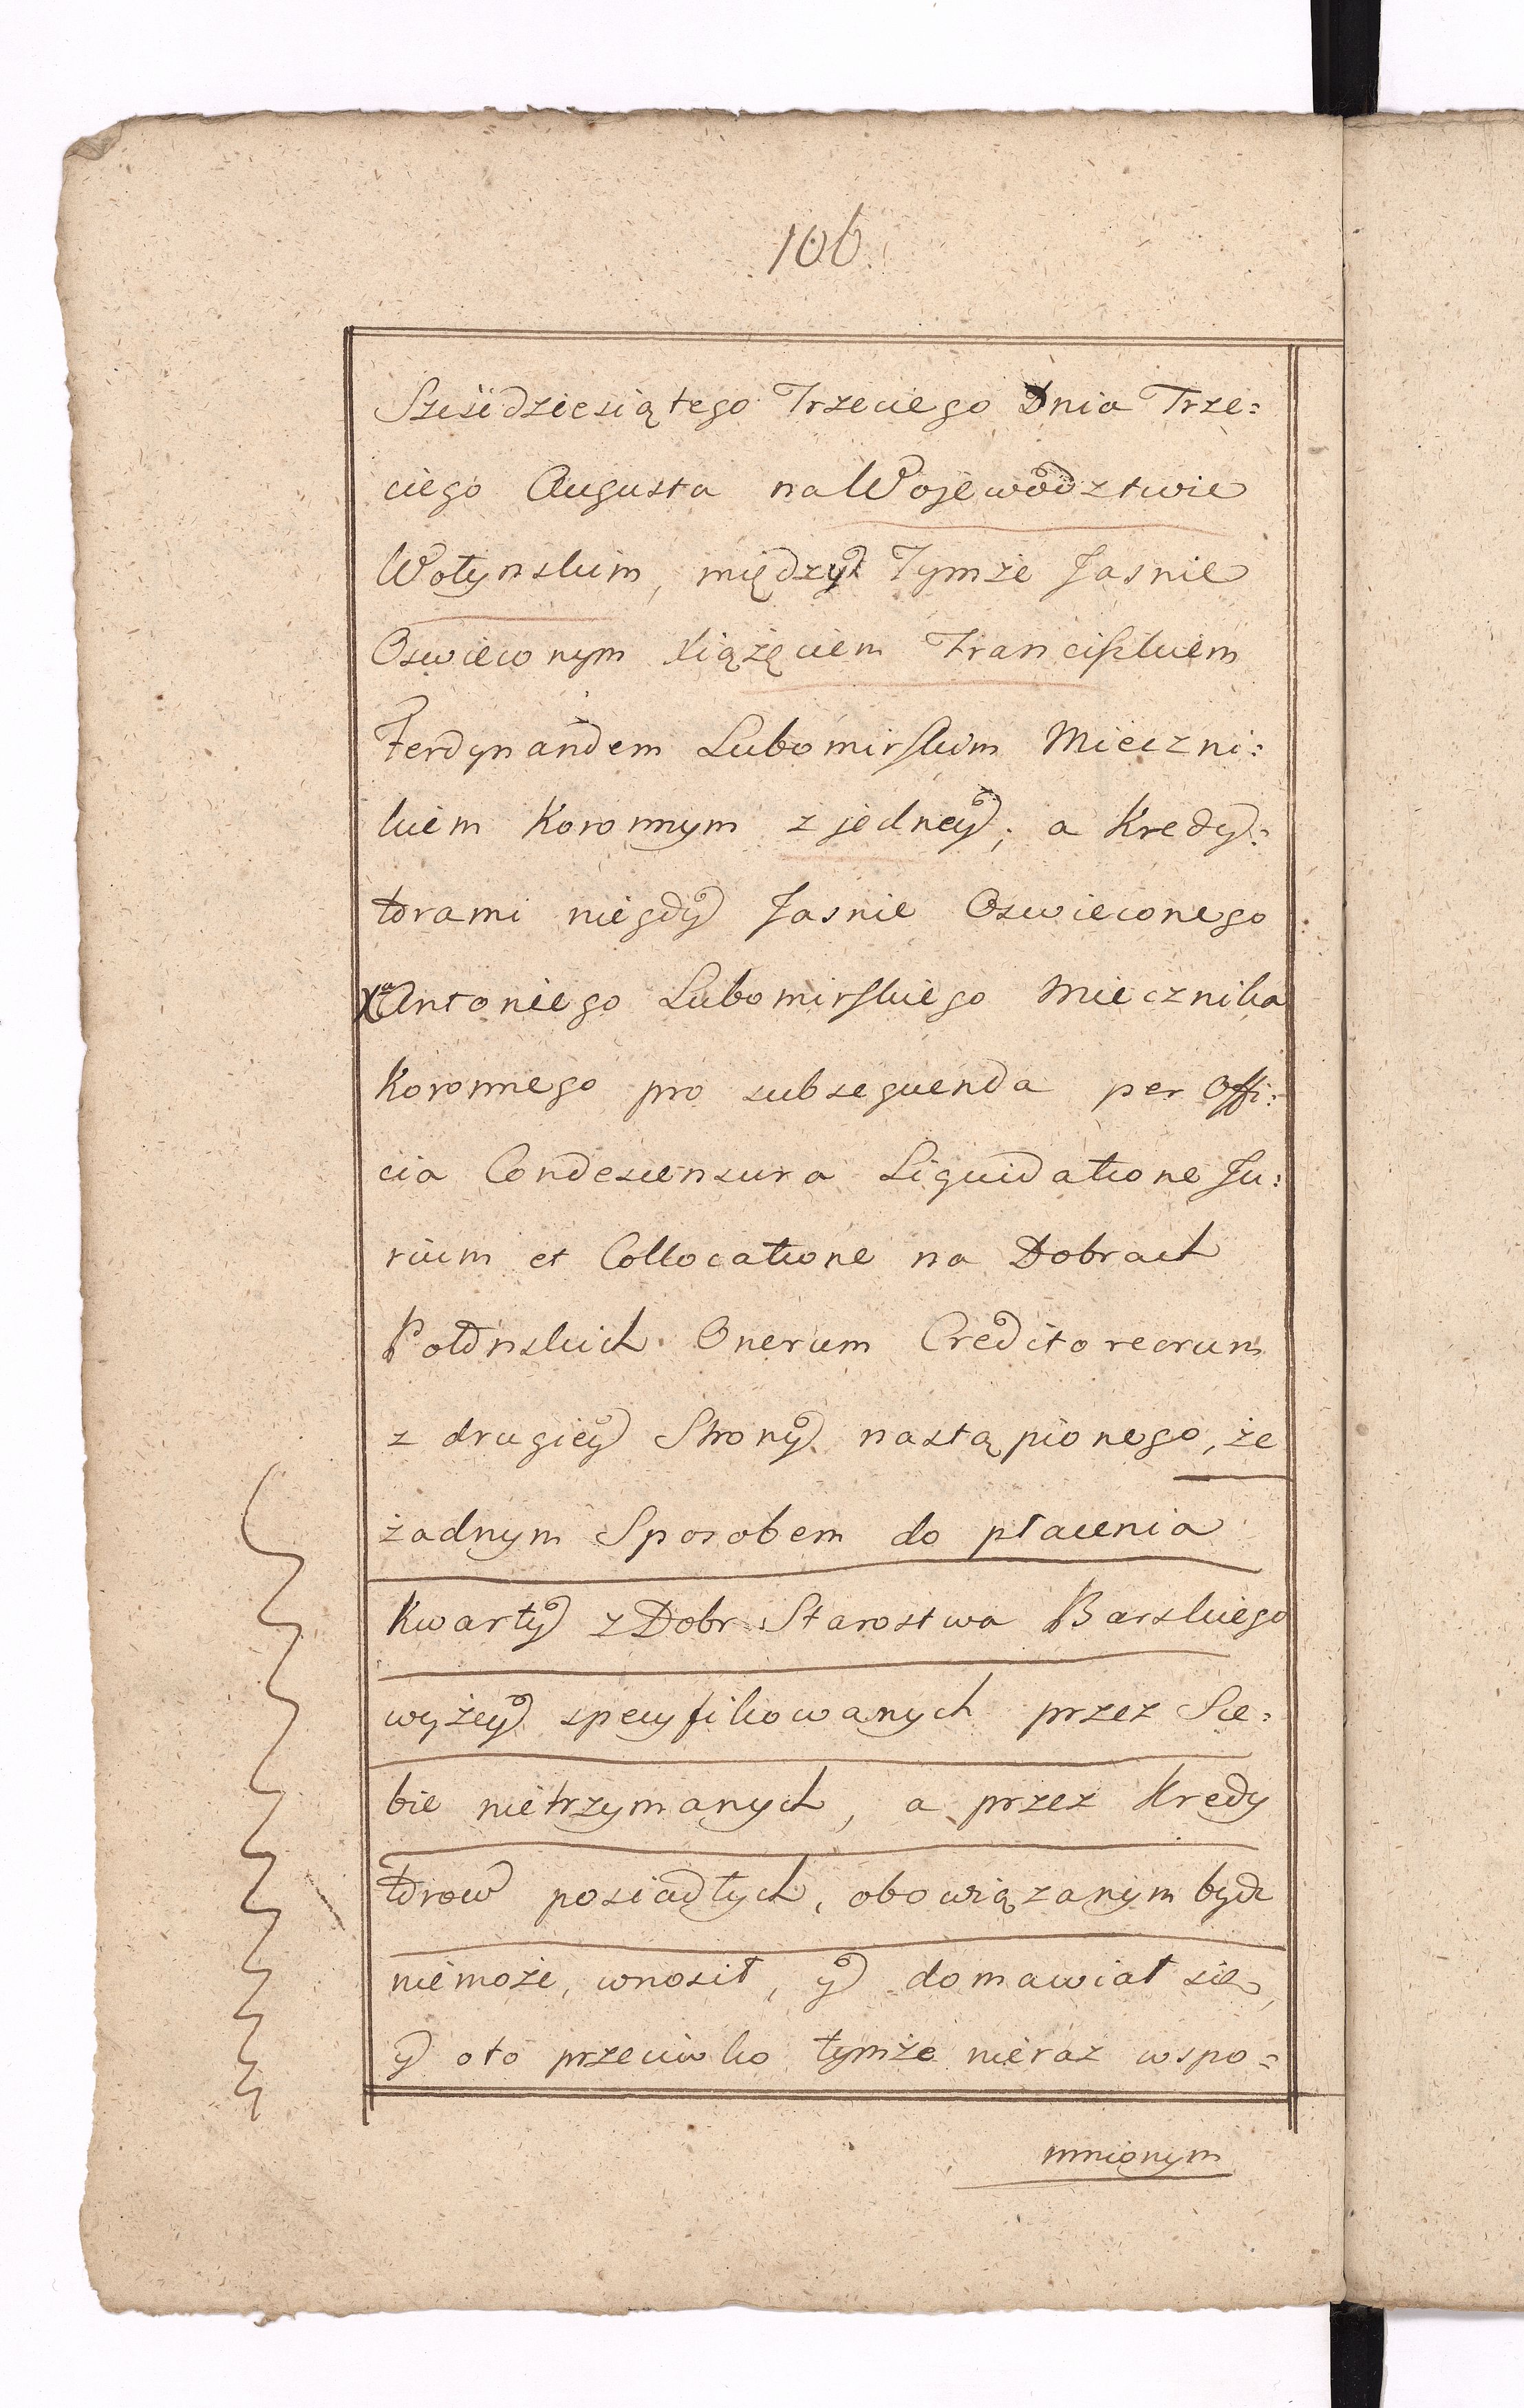 106.
Sześćdziesiątego Trzeciego Dnia Trze:
ciego Augusta na Woiewództwie
Wołynskim, między Tymże Jasnie
Oswieconym Xiążęciem Franciszkiem
Ferdynandem Lubomirskim Mieczni:
kiem Koronnym z jedney; a Kredy:
torami niegdy Jasnie Oswieconego
Xa Antoniego Lubomirskiego Miecznika
Koronnego pro subsequenda per Offi:
cia Condescensura Liquidatione Ju:
rium et Collocatione na Dobrach
Połonskich Onerum Creditoreorum
z drugiey Strony nastąpionego, że
żadnym Sposobem do płacenia
Kwarty z Dobr Starostwa Barskiego
wyżey specyfikowanych przez Sie:
bie nietrzymanych, a przez Kredy
torow posiadłych, obowiązanym bydź
niemoże, wnosił, y domawiał się,
y oto przeciwko tymże nieraz wspo=
mnionym